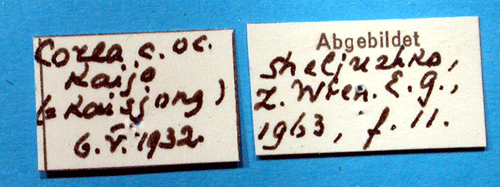 Corea c. oc.
Kaijo
(= Kaisjong)
6.V.1932.
Abgebildet
Sheljuzhko,
Z. Wien. E. G.,
1963, f. 11.